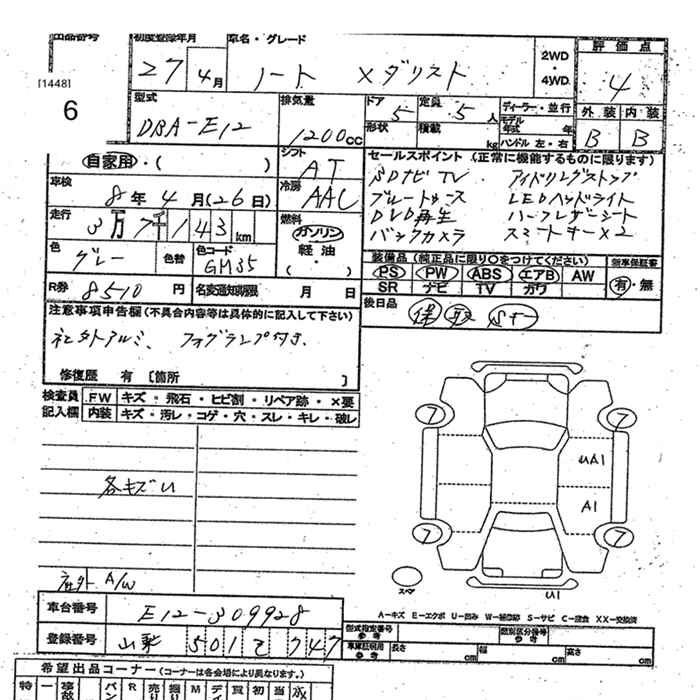 出品番号 初度登録年月 車名・グレード 評価点
[1448] 6
27年 4月 ノート Xダリスト 2WD・4WD 4
型式 排気量 ドア 5 定員 5人 ディーラー・並行 外装 内装
DBA-E12 1200cc 形状 積載 kg モデル年式 年 ハンドル 左・右 B B
自家用・( ) シフト AT セールスポイント (正常に機能するものに限ります)
車検 8年 4月(26日) 冷房 AAC
SDナビTV アイドリングストップ
ブルートゥース LEDヘッドライト
DVD再生 ハーフレザーシート
バックカメラ スマートキーX2
走行 3万7千143km 燃料 ガソリン 軽油・( )
色 グレー 色替 色コード GM35
装備品 (純正品に限り○をつけてください) 新車保証書
PS PW ABS エアB AW 有・無
SR ナビ TV カワ
R券 8510円 名変通知期限 月 日
後日品 保 取
注意事項申告欄 (不具合内容等は具体的に記入して下さい)
社外アルミ、フォグランプ付き、
修復歴 有 [箇所 ]
検査員記入欄 FW キズ・飛石・ヒビ割・リペア跡・×要
内装 キズ・汚レ・コゲ・穴・スレ・キレ・破レ
各キズU
社外 A/W
7 7
UA1
A1
7 7
スペ U1
A-キズ E-エクボ U-凹み W-補修跡 S-サビ C-腐食 XX-交換済
車台番号 E12-309928
登録番号 501 747
型式指定番号 参考 類別区分番号 参考
車庫証明用 参考 長さ cm 幅 cm 高さ cm
希望出品コーナー (コーナーは各会場により異なります。)